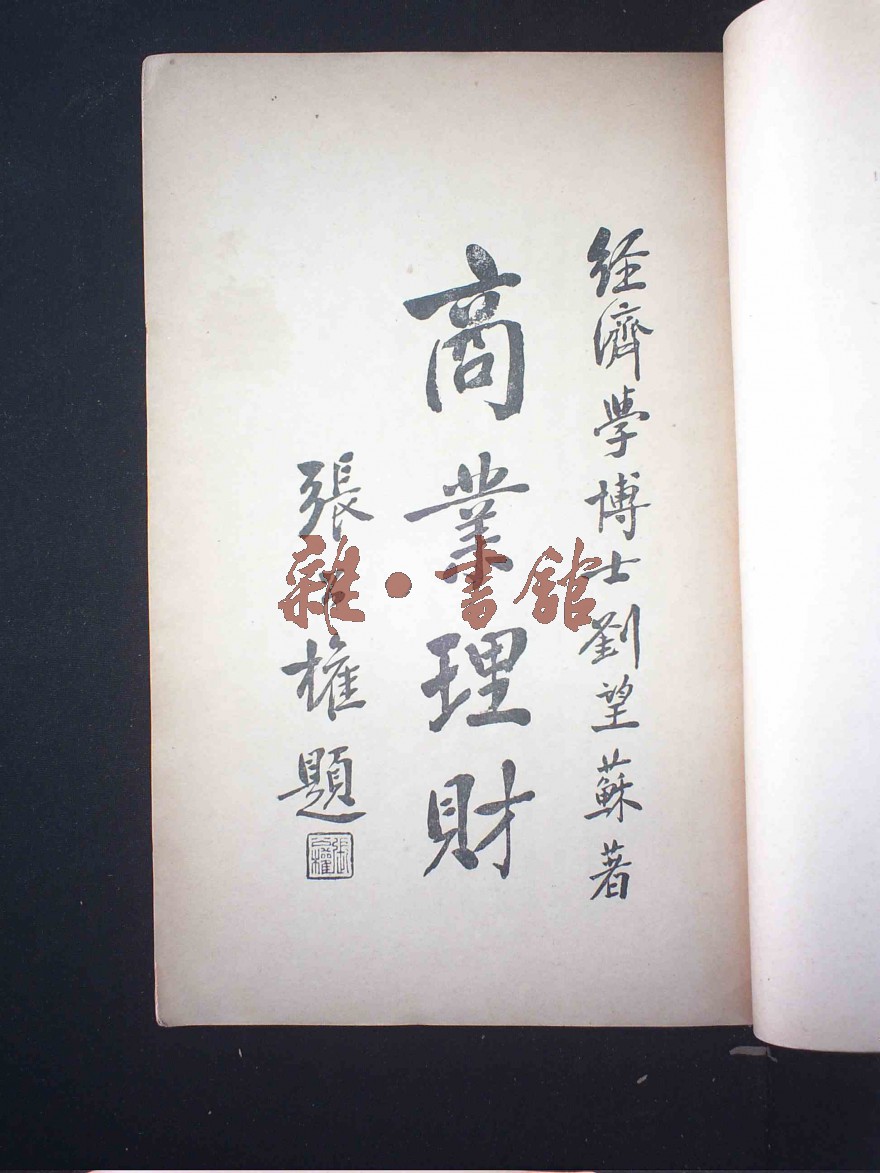 经濟学博士劉望蘇著
商業理財
張公權題
張公權
雜·書館